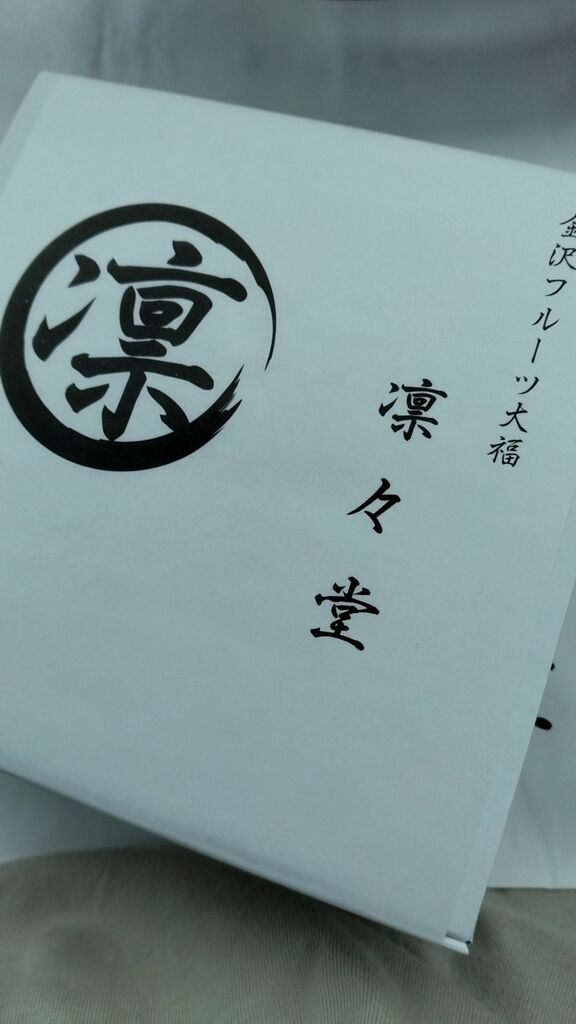 金沢フルーツ大福
凛々堂
凛